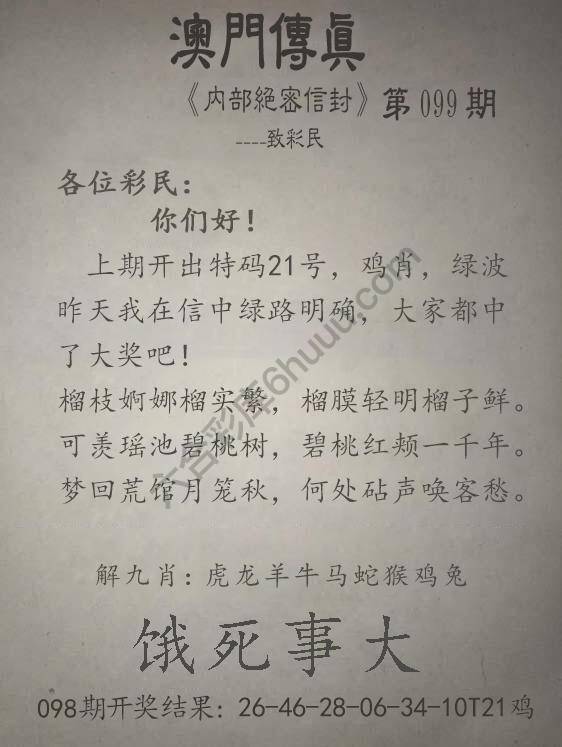 澳門傳眞
《内部絕密信封》第099期
----致彩民
各位彩民：
你们好！
上期开出特码21号，鸡肖，绿波
昨天我在信中绿路明确，大家都中
了大奖吧！
榴枝婀娜榴实繁，榴膜轻明榴子鲜。
可羡瑶池碧桃树，碧桃红颊一千年。
梦回荒馆月笼秋，何处砧声唤客愁。
解九肖：虎龙羊牛马蛇猴鸡兔
饿死事大
098期开奖结果：26-46-28-06-34-10T21鸡
六合彩库6huuu.com